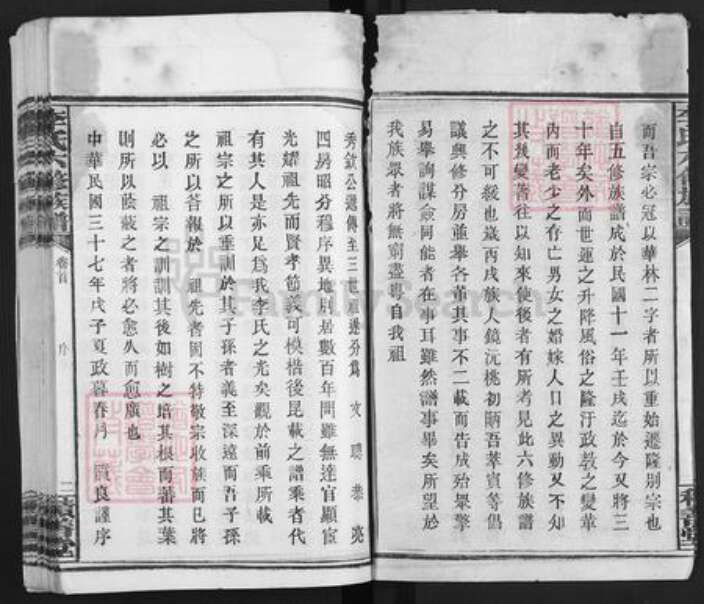 而吾宗必冠以華林二字者所以重始遷隆別宗也
自五修族譜成於民國十一年壬戌迄於今又將三
十年矣外而世運之升降風俗之隆汙政教之變革
內而老少之存亡男女之婚嫁人口之異動又不知
其幾變著往以知來使後者有所考見此六修族譜
之不可緩也歲丙戌族人鏡沅桃初炳吾萃賓等倡
議興修分房並舉各董其事不二載而告成殆眾擎
易舉詢謀僉同能者在事耳雖然譜事畢矣所望於
我族眾者將無窮盡粵自我祖
秀欽公遞傳至三世祖遂分為 文 聰 恭 亮
四房昭分穆序異地別居數百年間雖無達官顯宦
光耀祖先而賢孝節義可模楷後昆載之譜乘者代
有其人是亦足為我李氏之光矣觀於前乘所載
祖宗之所以垂訓於其子孫者義至深遠而吾子孫
之所以答報於 祖先者固不特敬宗收族而已將
必以 祖宗之訓訓其後如樹之培其根而蕃其葉
則所以蔭蔽之者將必愈久而愈廣也
中華民國三十七年戊子夏政暮春月 良謹序
李氏六修族譜
卷首
序
二
李氏六修族譜